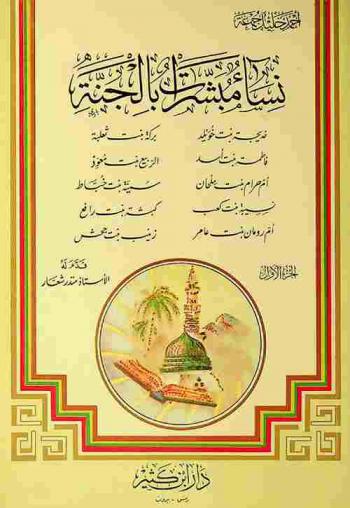 أحمد خليل جمعة
نساء مبشرات بالجنة
خديجة بنت خويلد
فاطمة بنت أسد
أم حرام بنت ملحان
نسيبة بنت كعب
أم رومان بنت عامر
بركة بنت ثعلبة
الربيع بنت معوذ
سمية بنت خباط
كبشة بنت رافع
زينب بنت جحش
قدم له
الأستاذ منذر شعار
الجزء الأول
دار ابن كثير
دمشق - بيروت